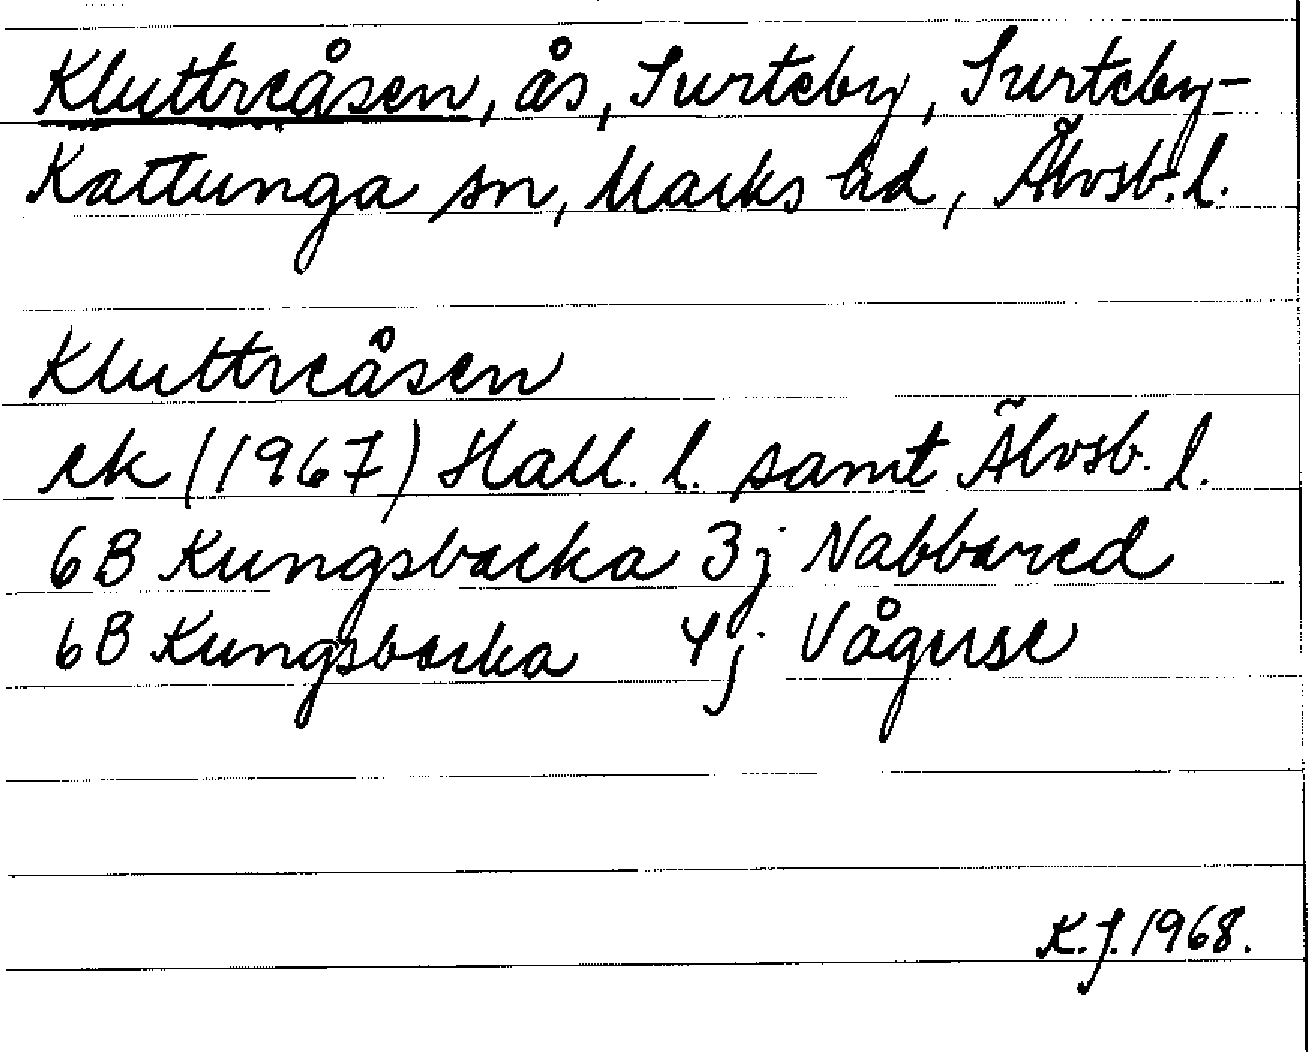 Kluttreåsen, ås, Surteby, Surteby-
Kattunga sn, Marks hd, Älvsb. l.
Kluttreåsen
ek (1967) Hall. l. samt Älvsb. l.
6B Kungsbacka 3j Nabbared
6B Kungsbacka 4j Våguse
K.J. 1968.